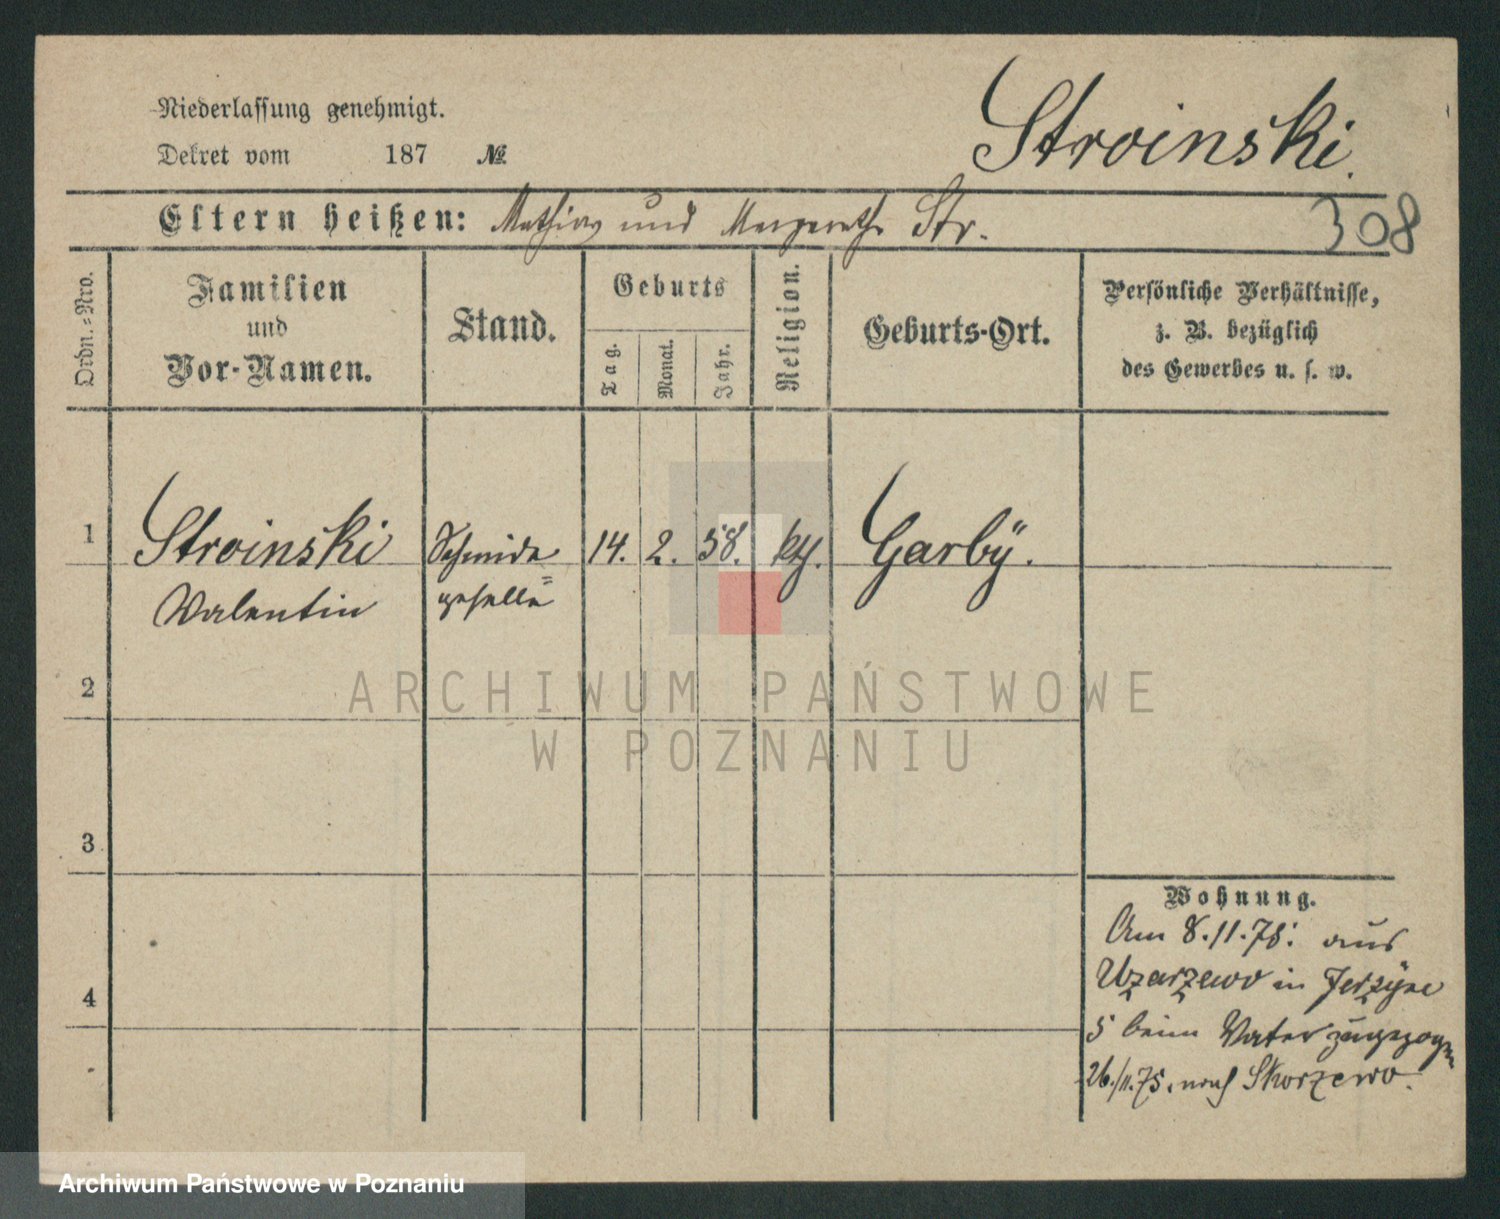 Niederlassung genehmigt.
Dekret vom 187 №
Stroinski.
Eltern heißen: Mathias und Margarethe Str.
308
Ordn.=Nro.
Familien
und
Vor-Namen.
Stand.
Geburts
Tag.
Monat.
Jahr.
Religion.
Geburts-Ort.
Persönliche Verhältnisse,
z. B. bezüglich
des Gewerbes u. s. w.
1
Stroinski
Valentin
Schmide
geselle
14. 2. 58. kth.
Garbÿ.
2
ARCHIWUM PAŃSTWOWE
W POZNANIU
3
4
Wohnung.
Am 8.11.75: aus
Uzarzewo in Jerzÿce
5 beim Vater zugezogen
26./11.75. nach Skorzewo.
Archiwum Państwowe w Poznaniu